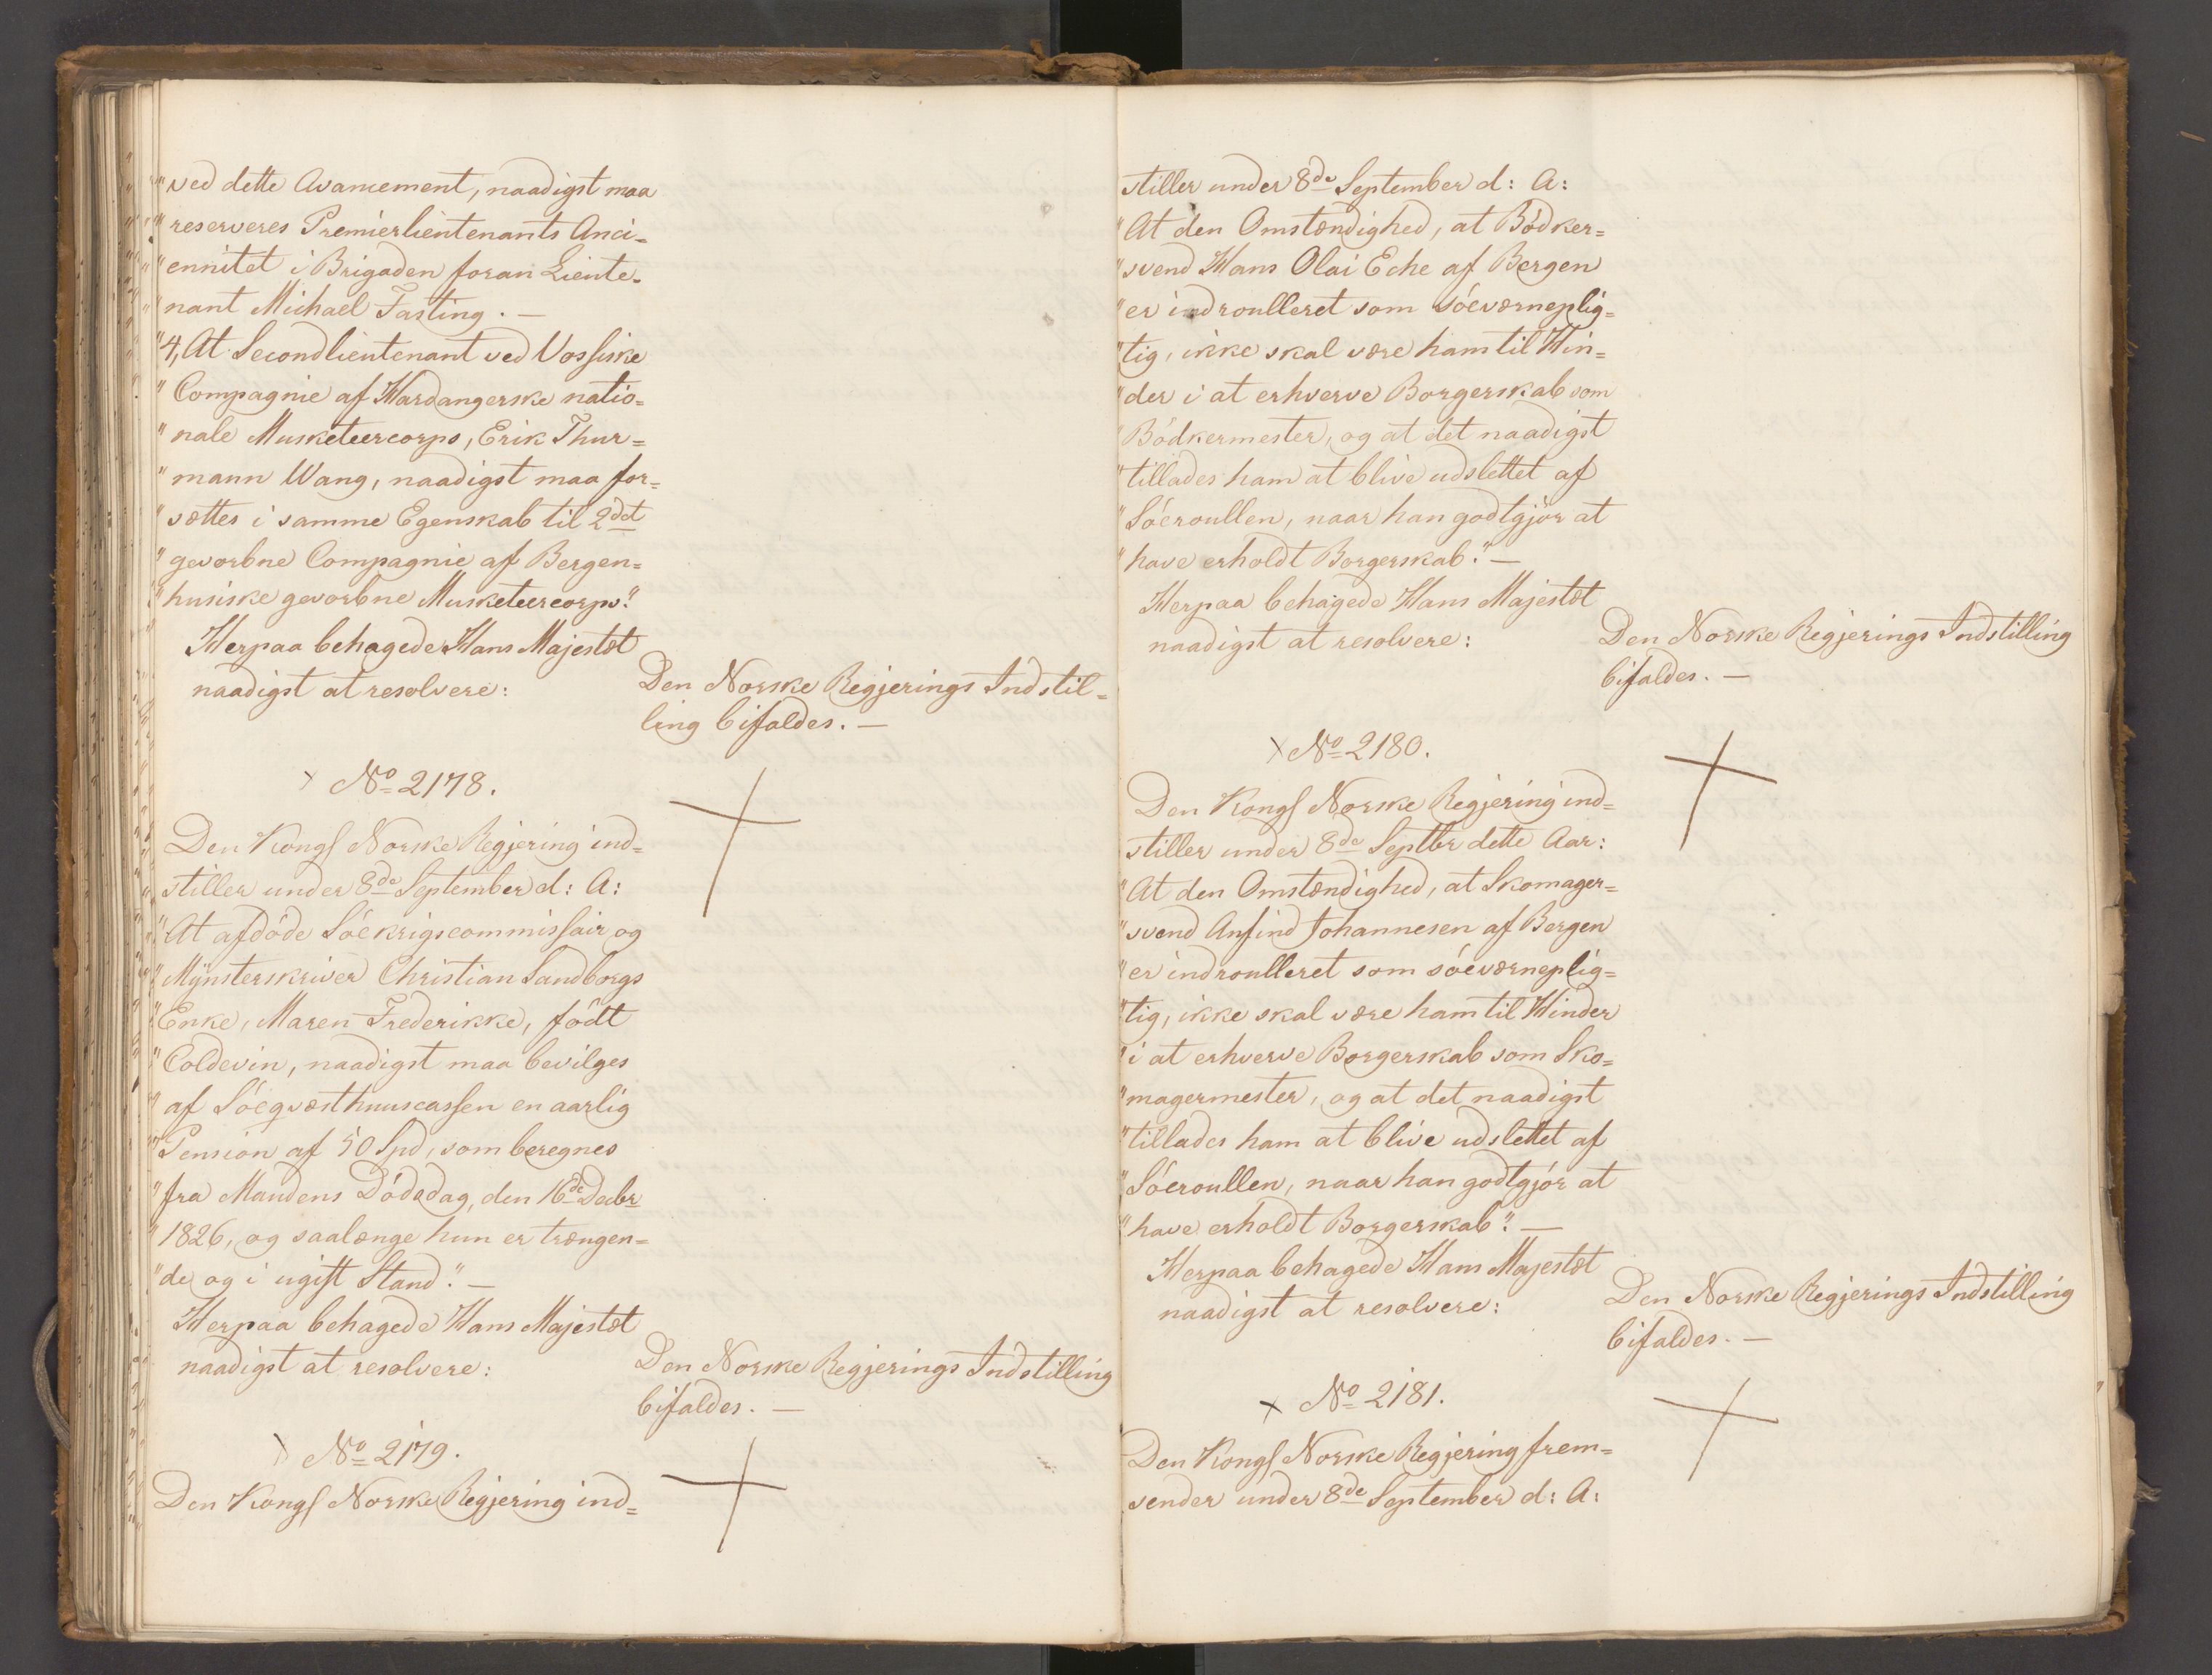 "ved dette Avancement, naadigst maa
"reserveres Premierlieutenants Anci-
"ennitet i Brigaden foran Lieute-
"nant Michael Fasting. —
"4, At Secondlieutenant ved Vossiske
"Compagnie af Hardangerske natio-
"nale Musketeercorps, Erik Thur-
"mann Wang, naadigst maa for-
"sættes i samme Egenskab til 2det
"gevorbne Compagnie af Bergen-
"husiske gevorbne Musketeercorps."
Herpaa behagede Hans Majestæt
naadigst at resolvere:
Den Norske Regjerings Indstil-
ling bifaldes. —
× No 2178.
Den Kongl Norske Regjering ind-
stiller under 8de September d: A:
"At afdöde Söekrigscommissair og
"Mÿnsterskriver Christian Sandborgs
"Enke, Maren Frederikke, födt
"Coldevin, naadigst maa bevilges
"af Söeqvæsthuuscassen en aarlig
"Pension af 50 Spd, som beregnes
"fra Mandens Dödsdag, den 16de Decbr
"1826, og saalænge hun er trængen-
"de og i ugift Stand." —
Herpaa behagede Hans Majestæt
naadigst at resolvere:
Den Norske Regjerings Indstilling
bifaldes. —
× No 2179.
Den Kongl Norske Regjering ind-
stiller under 8de September d: A:
"At den Omstændighed, at Bödker-
"svend Hans Olai Eche af Bergen
"er indroulleret som söeværneplig-
"tig, ikke skal være ham til Hin-
"der i at erhverve Borgerskab som
"Bödkermester, og at det naadigst
"tillades ham at blive udslettet af
"Söeroullen, naar han godtgjör at
"have erholdt Borgerskab." —
Herpaa behagede Hans Majestæt
naadigst at resolvere:
Den Norske Regjerings Indstilling
bifaldes. —
× No 2180.
Den Kongl Norske Regjering ind-
stiller under 8de Septbr dette Aar:
"At den Omstændighed, at Skomager-
"svend Anfind Johannesen af Bergen
"er indroulleret som söeværneplig-
"tig, ikke skal være ham til Hinder
"i at erhverve Borgerskab som Sko-
"magermester, og at det naadigst
"tillades ham at blive udslettet af
"Söeroullen, naar han godtgjör at
"have erholdt Borgerskab." —
Herpaa behagede Hans Majestæt
naadigst at resolvere:
Den Norske Regjerings Indstilling
bifaldes. —
× No 2181.
Den Kongl Norske Regjering frem-
sender under 8de September d: A: